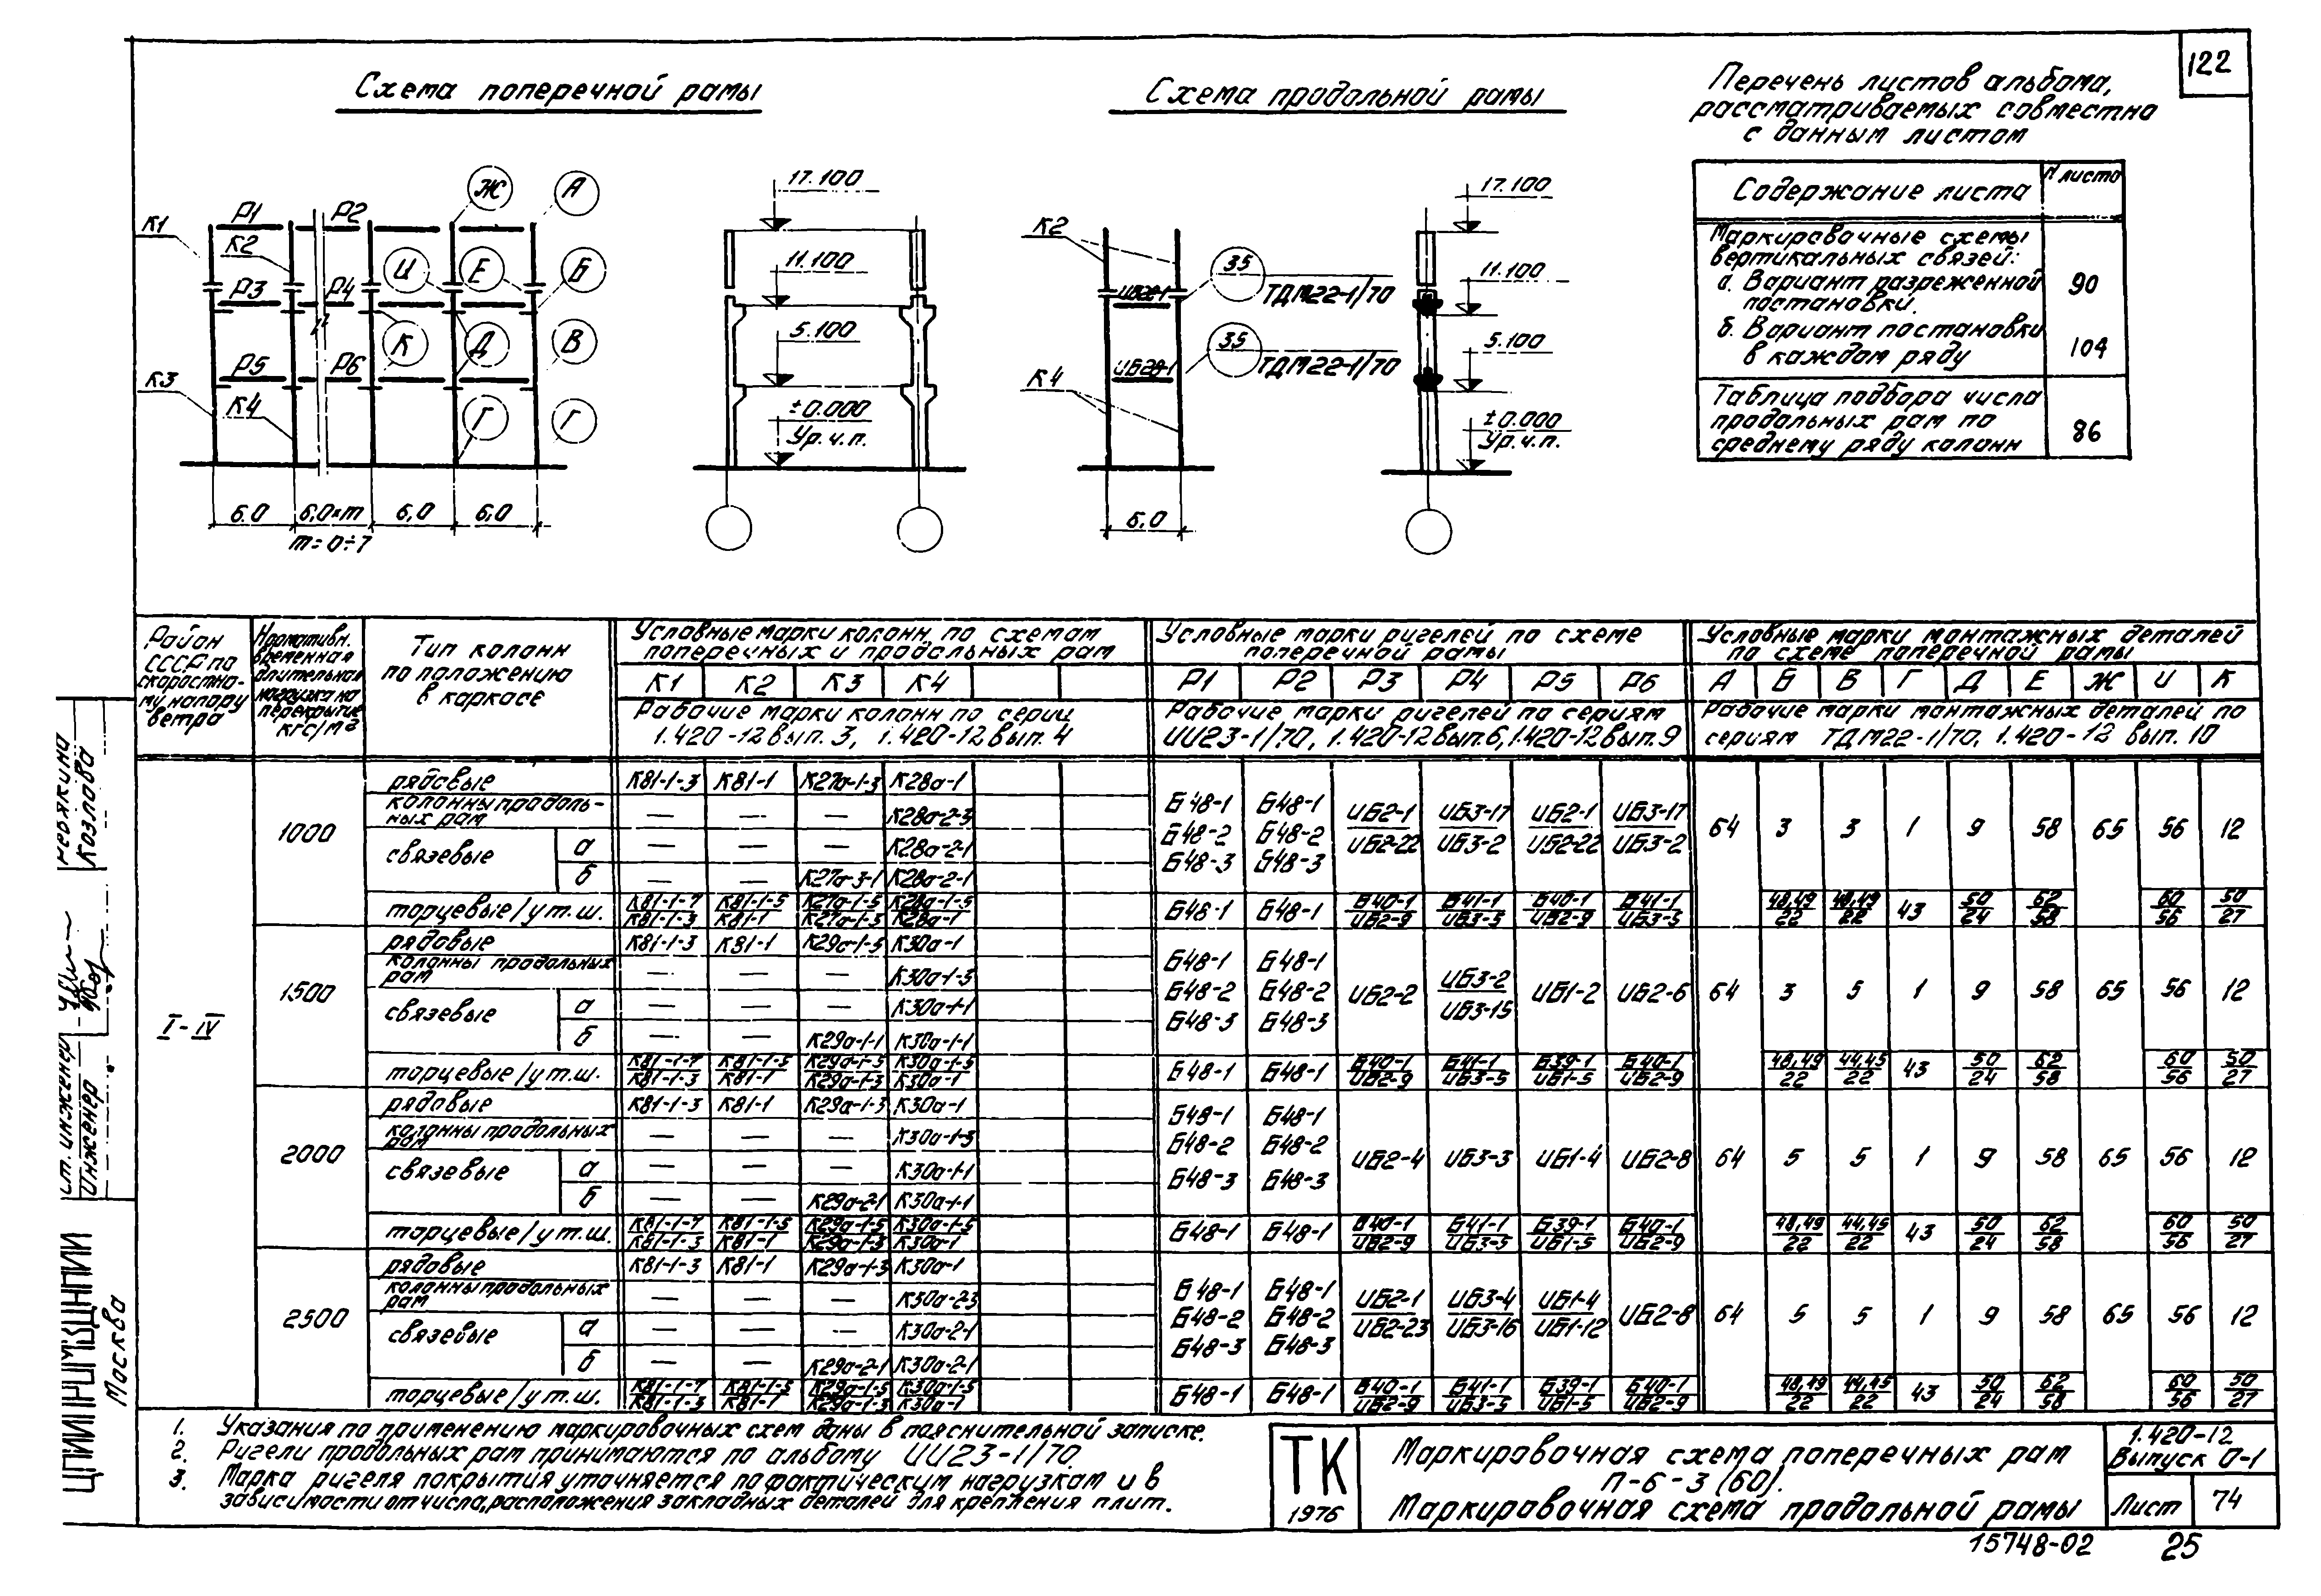 122
Схема поперечной рамы
Схема продольной рамы
Перечень листов альбома,
рассматриваемых совместно
с данным листом
Содержание листа
N листа
Маркировочные схемы
вертикальных связей:
а. Вариант разреженной
постановки.
90
б. Вариант постановки
в каждом ряду
104
Таблица подбора числа
продольных рам по
среднему ряду колонн
86
К1
Р1
К2
Р2
Ж
А
Р3
Р4
И
Е
Б
К3
Р5
Р6
К
Д
В
К4
Г
Г
6.0
6,0×m
6,0
6,0
m=0÷7
17.100
11.100
5.100
±0.000
Ур.ч.п.
К2
35
ТДМ22-1/70
35
ТДМ22-1/70
К4
6,0
17.100
11.100
5.100
±0.000
Ур.ч.п.
Район
СССР по
скоростно-
му напору
ветра
Нормативн.
временная
длительная
нагрузка на
перекрытие
кгс/м²
Тип колонн
по положению
в каркасе
Условные марки колонн по схемам
поперечных и продольных рам
К1 К2 К3 К4
Рабочие марки колонн по серии
1.420-12 вып. 3, 1.420-12 вып. 4
Условные марки ригелей по схеме
поперечной рамы
Р1 Р2 Р3 Р4 Р5 Р6
Рабочие марки ригелей по сериям
ИИ23-1/70, 1.420-12 вып.6, 1.420-12 вып. 9
Условные марки монтажных деталей
по схеме поперечной рамы
А Б В Г Д Е Ж И К
Рабочие марки монтажных деталей по
сериям ТДМ22-1/70, 1.420-12 вып. 10
I-IV
1000
рядовые К81-1-3 К81-1 К27а-1-3 К28а-1
колонны продоль-
ных рам — — — К28а-2-3
связевые а — — — К28а-2-1
б — — К27а-3-1 К28а-2-1
Б48-1 Б48-1 ИБ2-1 ИБ3-17 ИБ2-1 ИБ3-17
Б48-2 Б48-2 ИБ2-22 ИБ3-2 ИБ2-22 ИБ3-2
Б48-3 Б48-3
64 3 3 1 9 58 65 56 12
торцевые/у т.ш. К81-1-7 К81-1-5 К27а-1-5 К28а-1-5
К81-1-3 К81-1 К27а-1-3 К28а-1
Б48-1 Б48-1 Б40-1 Б41-1 Б40-1 Б41-1
ИБ2-9 ИБ3-5 ИБ2-9 ИБ3-5
48,49 48,49 43 50 62 60 50
22 22 24 58 56 27
1500
рядовые К81-1-3 К81-1 К29а-1-3 К30а-1
колонны продольных
рам — — — К30а-1-3
связевые а — — — К30а-1-1
б — — К29а-1-1 К30а-1-1
Б48-1 Б48-1
Б48-2 Б48-2 ИБ2-2 ИБ3-2 ИБ1-2 ИБ2-6
Б48-3 Б48-3 ИБ3-15
64 3 5 1 9 58 65 56 12
торцевые/у т.ш. К81-1-7 К81-1-5 К29а-1-5 К30а-1-5
К81-1-3 К81-1 К29а-1-3 К30а-1
Б48-1 Б48-1 Б40-1 Б41-1 Б39-1 Б40-1
ИБ2-9 ИБ3-5 ИБ1-5 ИБ2-9
48,49 44,45 43 50 62 60 50
22 22 24 58 56 27
2000
рядовые К81-1-3 К81-1 К29а-1-3 К30а-1
колонны продольных
рам — — — К30а-1-3
связевые а — — — К30а-1-1
б — — К29а-2-1 К30а-1-1
Б48-1 Б48-1
Б48-2 Б48-2 ИБ2-4 ИБ3-3 ИБ1-4 ИБ2-8
Б48-3 Б48-3
64 5 5 1 9 58 65 56 12
торцевые/у т.ш. К81-1-7 К81-1-5 К29а-1-5 К30а-1-5
К81-1-3 К81-1 К29а-1-3 К30а-1
Б48-1 Б48-1 Б40-1 Б41-1 Б39-1 Б40-1
ИБ2-9 ИБ3-5 ИБ1-5 ИБ2-9
48,49 44,45 43 50 62 60 50
22 22 24 58 56 27
2500
рядовые К81-1-3 К81-1 К29а-1-3 К30а-1
колонны продольных
рам — — — К30а-2-3
связевые а — — — К30а-2-1
б — — К29а-2-1 К30а-2-1
Б48-1 Б48-1 ИБ2-1 ИБ3-4 ИБ1-4 ИБ2-8
Б48-2 Б48-2 ИБ2-23 ИБ3-16 ИБ1-12
Б48-3 Б48-3
64 5 5 1 9 58 65 56 12
торцевые/у т.ш. К81-1-7 К81-1-5 К29а-1-5 К30а-1-5
К81-1-3 К81-1 К29а-1-3 К30а-1
Б48-1 Б48-1 Б40-1 Б41-1 Б39-1 Б40-1
ИБ2-9 ИБ3-5 ИБ1-5 ИБ2-9
48,49 44,45 43 50 62 60 50
22 22 24 58 56 27
1. Указания по применению маркировочных схем даны в пояснительной записке.
2. Ригели продольных рам принимаются по альбому ИИ23-1/70.
3. Марка ригеля покрытия уточняется по фактическим нагрузкам и в
зависимости от числа, расположения закладных деталей для крепления плит.
ТК
1976
Маркировочная схема поперечных рам
П-6-3 (60).
Маркировочная схема продольной рамы
1.420-12
Выпуск 0-1
Лист 74
15748-02 25
ЦНИИПРОМЗДАНИЙ
Москва
ст. инженер
инженер
Козлова